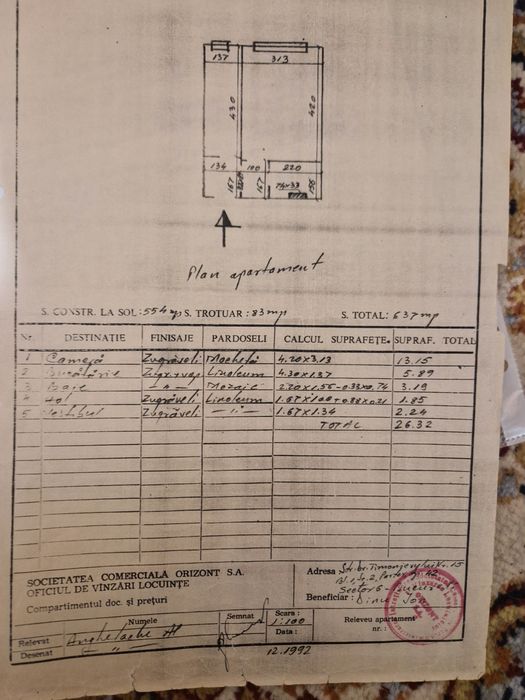 137 313
430 420
134 100 220
167 167 74x33 158
Plan apartament
S. CONSTR. LA SOL: 554 mp S. TROTUAR: 83 mp S. TOTAL: 637 mp
Nr. DESTINAȚIE FINISAJE PARDOSELI CALCUL SUPRAFEȚE. SUPRAF. TOTAL
1 Cameră Zugrăveli Mochetă 4.20x3.13 13.15
2 Bucătărie Linoleum 4.30x1.37 5.89
3 Baie -"- Mozaic 2.20x1.55-0.33x0.74 3.19
4 Hol Zugrăveli Linoleum 1.67x1.00+0.88x0.21 1.85
5 Vestibul Zugrăveli -"- 1.67x1.34 2.24
TOTAL 26.32
SOCIETATEA COMERCIALĂ ORIZONT S.A.
OFICIUL DE VINZĂRI LOCUINȚE
Compartimentul doc. și prețuri
Adresa: Str. 15
Bl. Sc. 2, Parter
Sector 6
Beneficiar: Dinu
Numele Semnat Scara: 1:100
Data:
Releveu apartament
nr.:
Relevat Anghelache
Desenat -"-
12.1992